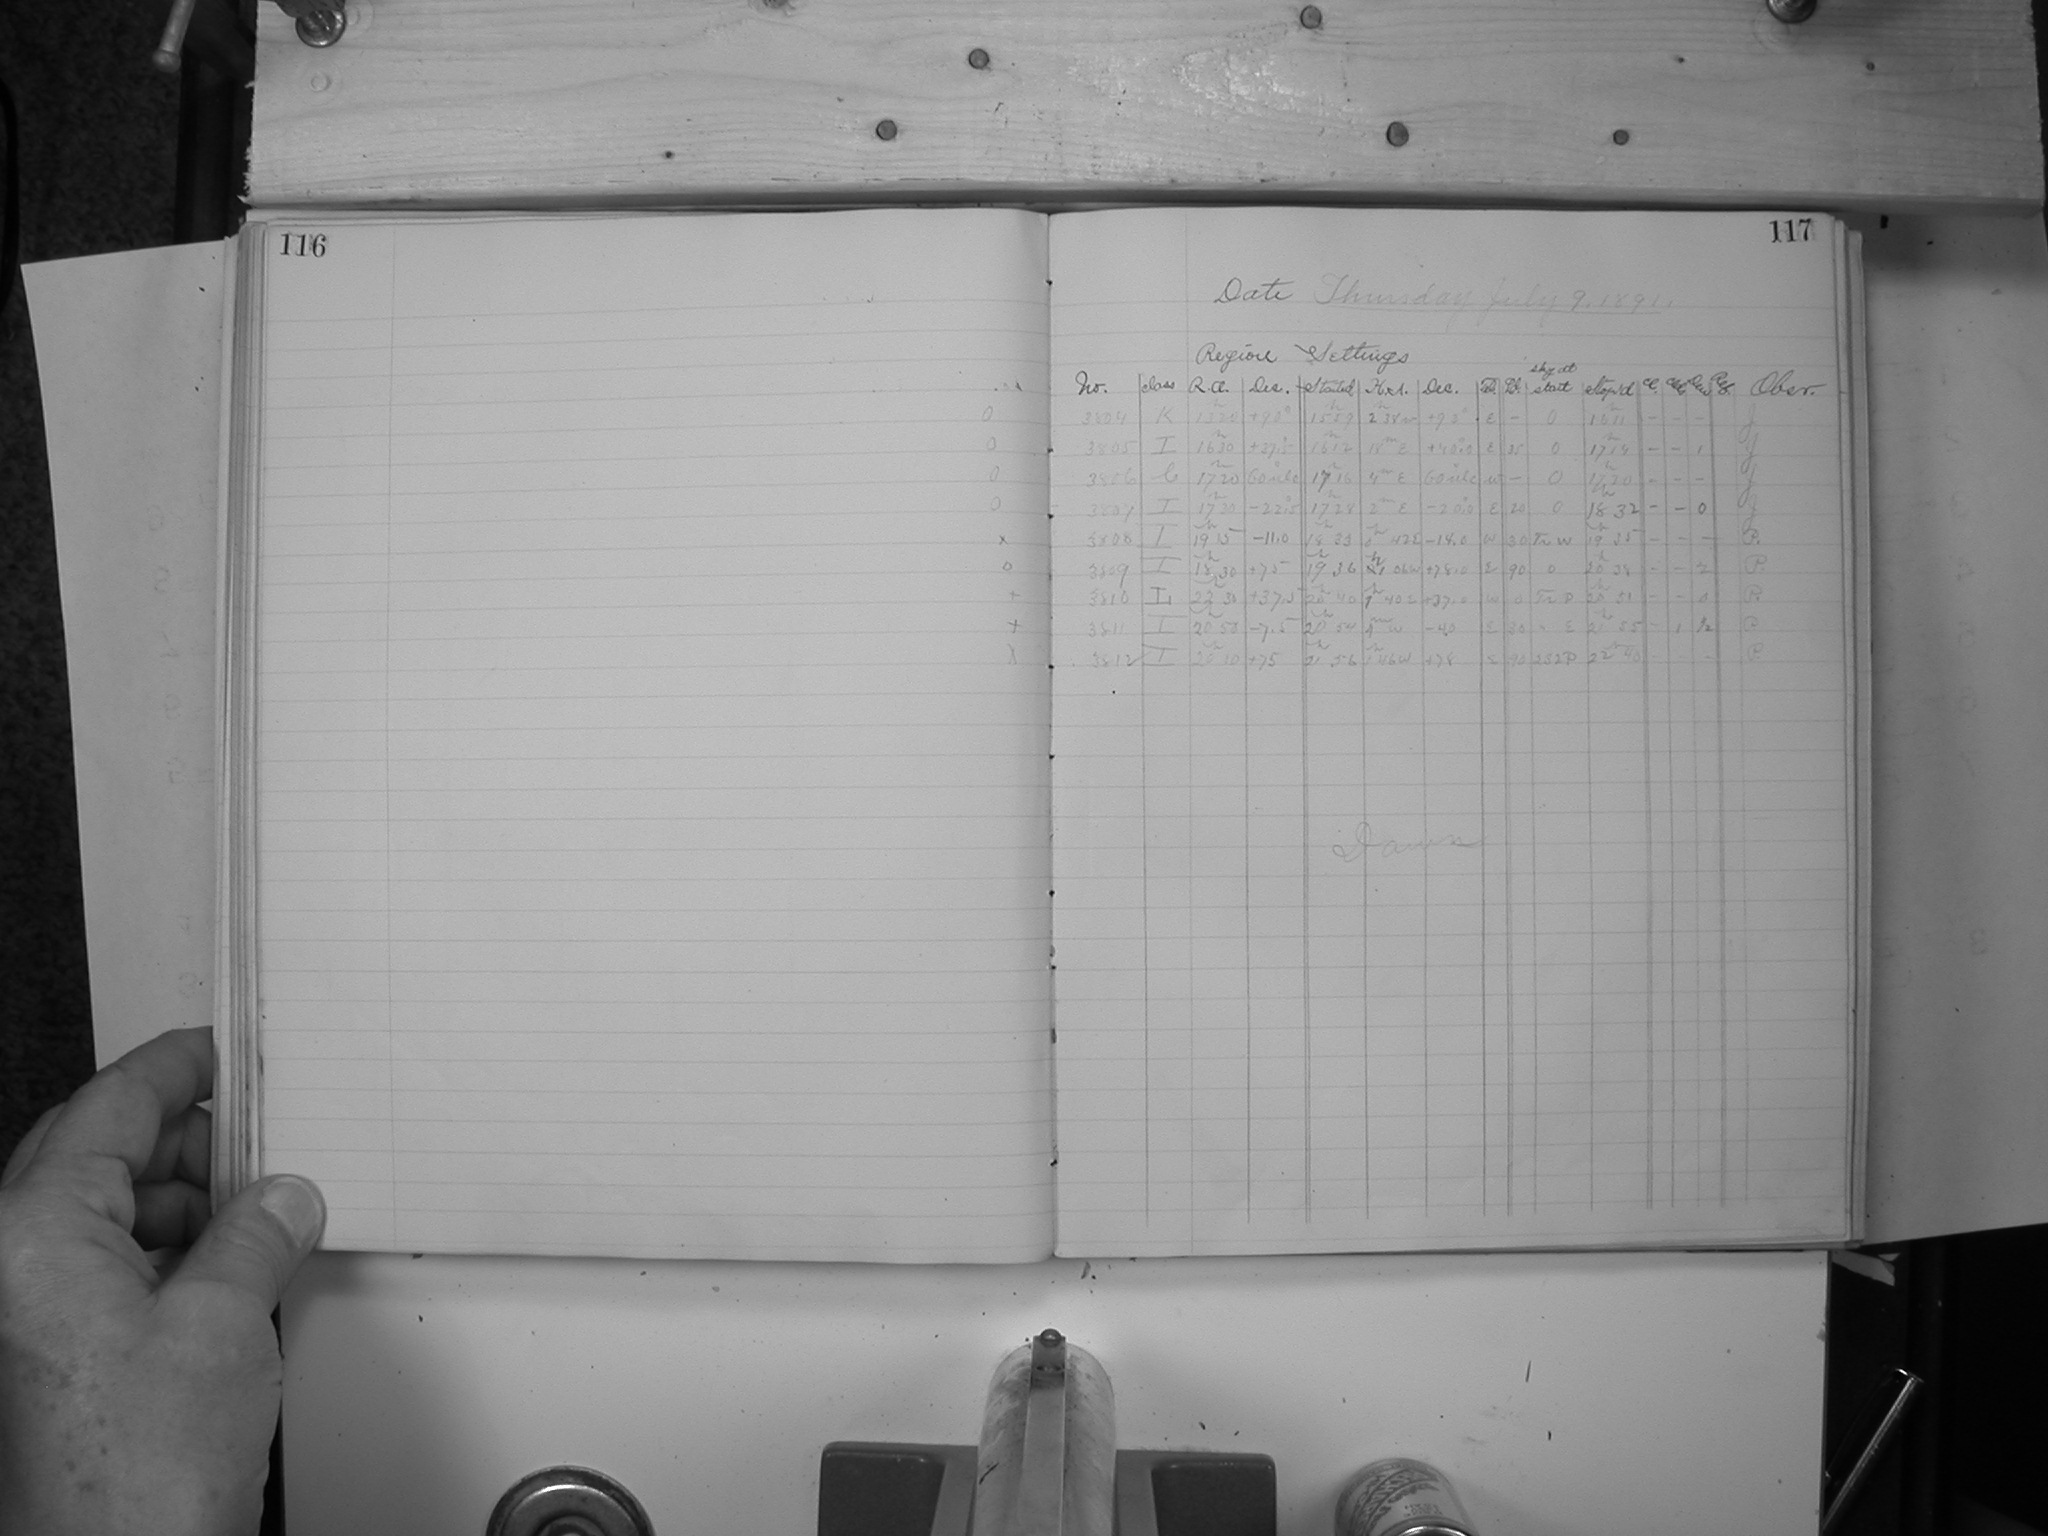 116
117
Date Thursday July 9. 1891.
Region Settings
No. Class R.A. Dec. Started H.A. Dec. sky at start Stop'd Cl. Obser.
0 3804 K +90° 1559 2 38 w +90° E - 0 1611 - - - J
0 3805 I 1630 +37.5 1612 18m E +40.0 E 35 0 1714 - - 1 J
0 3806 C 1720 1716 4m E w - 0 1720 - - - J
0 3807 I 1730 -22.5 1728 2m E -20.0 E 20 0 18 32 - - 0 J
x 3808 I 19 15 -11.0 18 33 42E -14.0 W 30 Tr W 19 35 - - - P.
0 3809 I 18 30 +75 19 36 1 06W +78.0 E 90 0 20 38 - - 2 P.
+ 3810 I 22 30 +37.5 20 40 1 40E +37.0 W 0 Tr P 20 51 - - P.
+ 3811 I 20 50 -7.5 20 54 4m W -4.0 E 30 " E 21 55 - 1 P
X 3812 I +75 21 56 1 46W +78 E 90 22 40 - - - P
Dawn